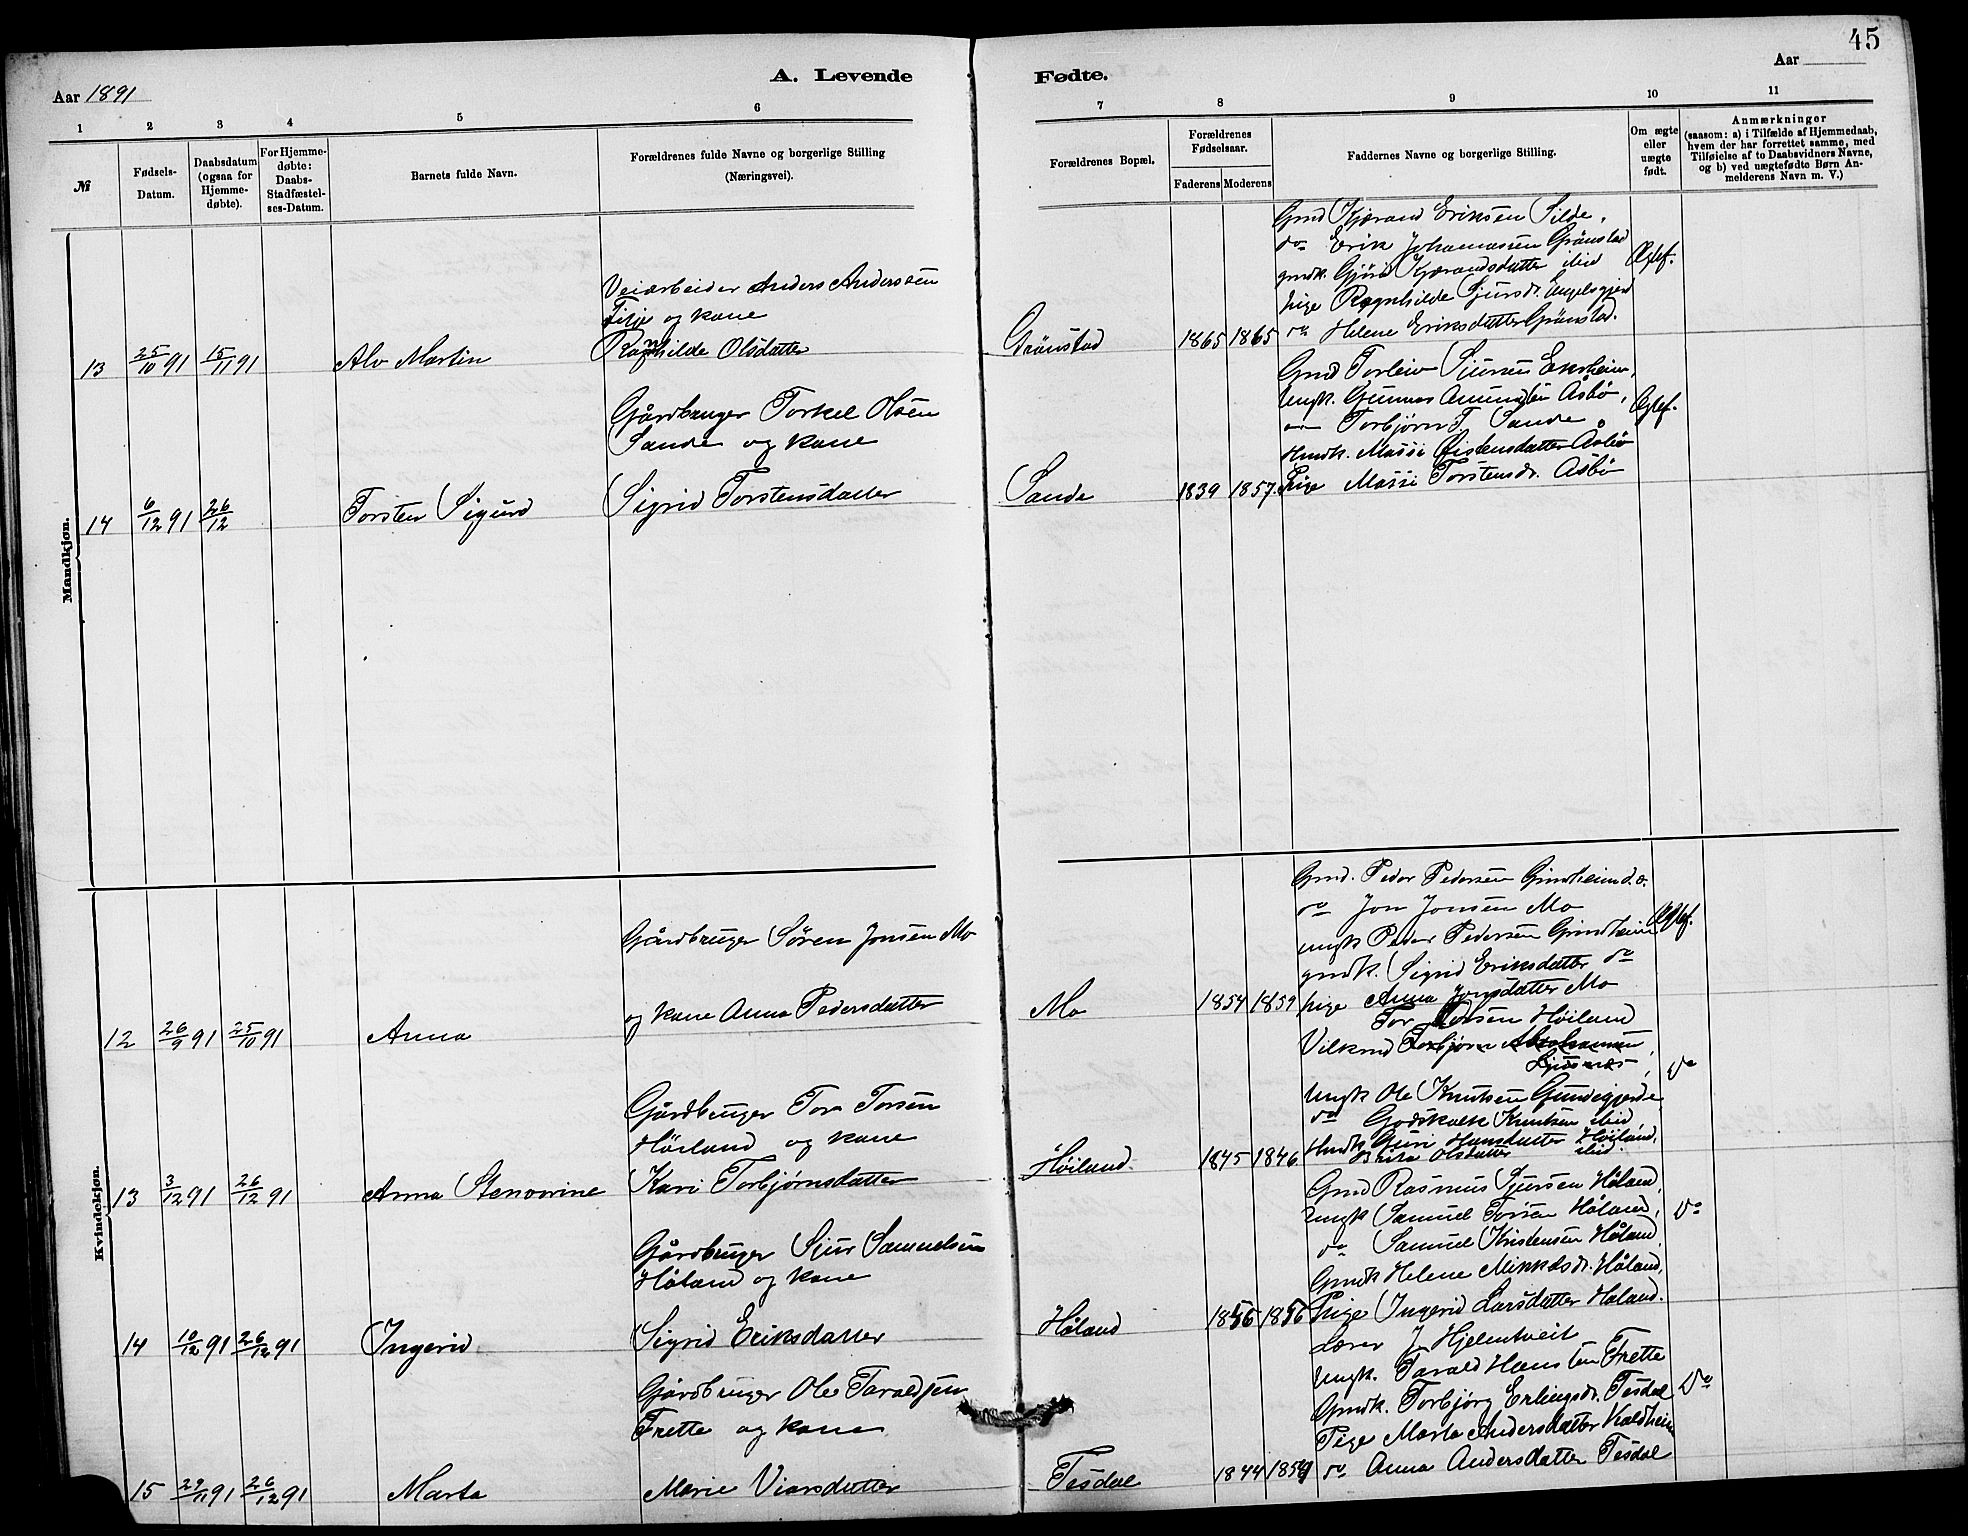 45
A. Levende
Fødte.
Aar 1891
Aar
1 2 3 4 5 6 7 8 9 10 11
№
Fødsels-
Datum.
Daabsdatum
(ogsaa for
Hjemme-
døbte).
For Hjemme-
døbte:
Daabs-
Stadfæstel-
ses-Datum.
Barnets fulde Navn.
Forældrenes fulde Navne og borgerlige Stilling
(Næringsvei).
Forældrenes Bopæl.
Forældrenes
Fødselsaar.
Faderens Moderens
Faddernes Navne og borgerlige Stilling.
Om ægte
eller
uægte
født.
Anmærkninger
(saasom: a) i Tilfælde af Hjemmedaab,
hvem der har forrettet samme, med
Tilføielse af to Daabsvidners Navne,
og b) ved uægtefødte Børn An-
melderens Navn m. V.)
Mandkjøn.
13 25/10 91 15/11 91 Alv Martin
Veiarbeider Anders Anderssen
og kone
Ragnhilde Olsdatter
Grönstad 1865 1865
Gmd Kjørand Eriksen Silde,
do Erik Johannassen Grönstad
gmdk. Gjöri Kjørandsdatter ibid
Pige Ragnhilde Sjursdr.
do Helene Eriksdatter Grönstad.
Ægtef.
14 6/12 91 26/12 Torsten Sigurd
Gårdbruger Torkel Olsen
Sande og kone
Sigrid Torstensdatter
Sande 1839 1857.
Gmd Torleiv Sjursen Ekrheim,
Ungk. Gunnar Amundsen Åsbø,
Torbjørn T. Sande
Hmdk. Massi Øistensdatter Åsbø
Pige Massi Torstensdr. Åsbø
Ægtef.
Kvindekjøn.
12 26/9 91 25/10 91 Anna
Gårdbruger Sören Jonsen Mo
og kone Anna Pedersdatter
Mo 1854 1859
Gmd. Peder Pedersen Grindheim d.æ.
do Jon Jonsen Mo
ungk Peder Pedersen Grindheim
gmdk. Sigrid Eriksdatter do
pige Anna Jonsdatter Mo
Ægtef.
13 3/12 91 26/12 91 Anna Stenovine
Gårdbruger Tor Torsen
Höiland og kone
Kari Torbjörnsdatter
Höiland. 1845 1846
Tor Torsen Höiland
Torbjörn Abrahamsen
Ungk Ole Knutsen Gundegjerde,
do Godskalk Knutsen ibid
Hmdk Guri Hansdatter Höiland,
Brita Olsdatter ibid.
do
14 10/12 91 26/12 91 Ingerid
Gårdbruger Sjur Samuelsen
Håland og kone
Sigrid Eriksdatter
Håland 1856 1856
Gmd Rasmus Sjursen Håland,
Ungk Samuel Torsen Håland,
do Samuel Kristensen Håland,
Gmdk Helene Mikkelsdr. Håland,
Pige Ingerid Larsdatter Håland.
do
15 29/11 91 26/12 91 Marta
Gårdbruger Ole Taraldsen
Frette og kone
Marie Viarsdatter
Tesdal 1844 1859
Lærer J Hjelmtveit
Ungk. Tarald Hansen Frette
Gmdk. Torbjörg Erlingsdr. Tesdal
Pige Marta Andersdatter Kaldheim
do Anna Andersdatter Tesdal
do